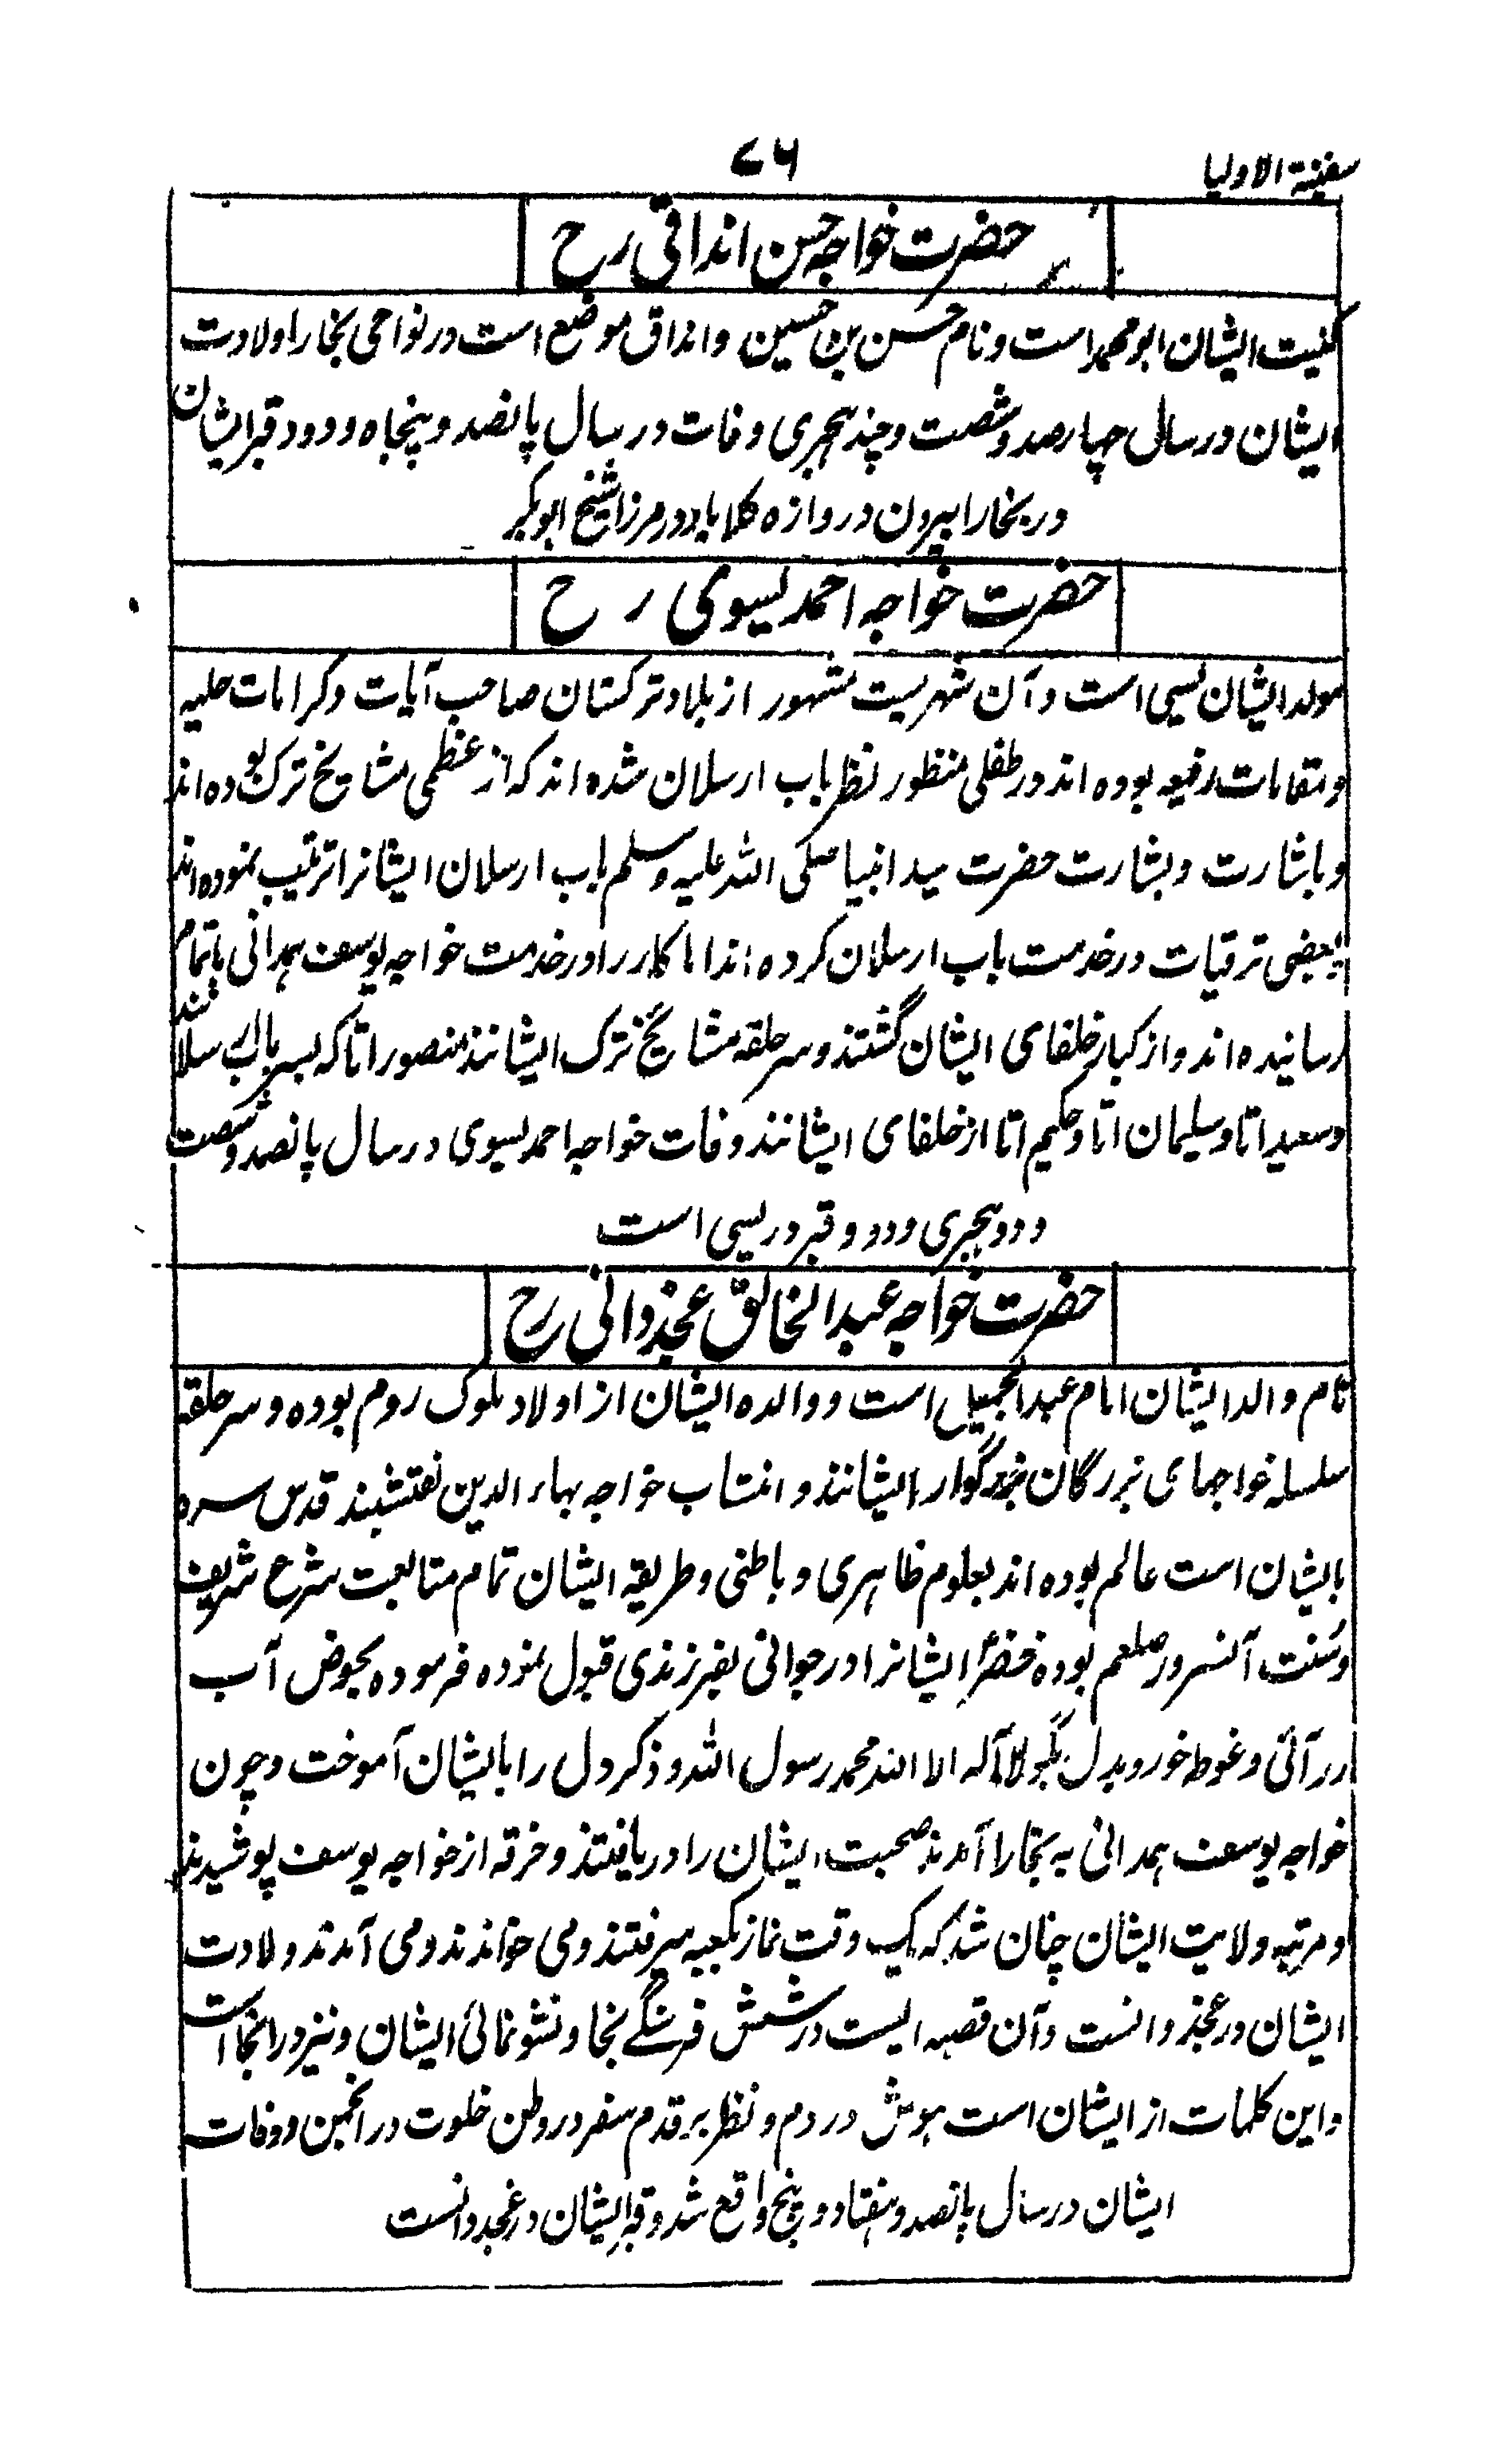 سفینة الاولیا
۷۶
حضرت خواجه حسن انداقی رح
کنیت ایشان ابو محمد است و نام حسن بن حسین و انداق موضع است در نواحی بخارا ولادت
ایشان در سال چهارصد و شصت و چند هجری وفات در سال پانصد و پنجاه و دو و قبر ایشان
در بخارا بیرون دروازه کلاباد در مزار شیخ ابوبکر
حضرت خواجه احمد یسوی رح
مولد ایشان یسی است و آن شهریست مشهور از بلاد ترکستان صاحب آیات و کرامات جلیه
و مقامات رفیعه بوده اند در طفلی منظور نظر باب ارسلان شده اند که از عظمی مشایخ ترک بوده اند
و باشارت و بشارت حضرت سید انبیا صلی الله علیه وسلم باب ارسلان ایشانرا تربیت نموده اند
بعضی ترقیات در خدمت باب ارسلان کرده اند اما کار را در خدمت خواجه یوسف همدانی باتمام
رسانیده اند و از کبار خلفای ایشان گشتند و سر حلقه مشایخ ترک ایشانند منصور اتا که پسر باب ارسلانند
و سعید اتا و سلیمان اتا و حکیم اتا از خلفای ایشانند وفات خواجه احمد یسوی در سال پانصد و شصت
و دو هجری و دو و قبر در یسی است
حضرت خواجه عبد الخالق غجدوانی رح
نام والد ایشان امام عبد الجمیل است و والده ایشان از اولاد ملوک روم بوده و سر حلقه
سلسله خواجهای بزرگان بزرگوار ایشانند و انتساب خواجه بهاء الدین نقشبند قدس سره
بایشان است عالم بوده اند بعلوم ظاهری و باطنی و طریقه ایشان تمام متابعت شرع شریف
و سنت آنسرور صلعم بوده خضرؑ ایشانرا در جوانی بفرزندی قبول نموده فرموده بحوض آب
در آئی و غوطه خور و بدل بگو لا آله الا الله محمد رسول الله و ذکر دل را بایشان آموخت و چون
خواجه یوسف همدانی به بخارا آمدند صحبت ایشان را دریافتند و خرقه از خواجه یوسف پوشیدند
و مرتبه ولایت ایشان چنان شد که یک وقت نماز بکعبه میرفتند و می خواندند و می آمدند ولادت
ایشان در غجذوانست و آن قصبه ایست در شش فرسنگے بخارا و نشو نمائی ایشان و نیز در انجا است
و این کلمات از ایشان است هوش در دم و نظر بر قدم سفر در وطن خلوت در انجمن و وفات
ایشان در سال پانصد و هفتاد و پنج واقع شد و قبر ایشان در غجدوانست